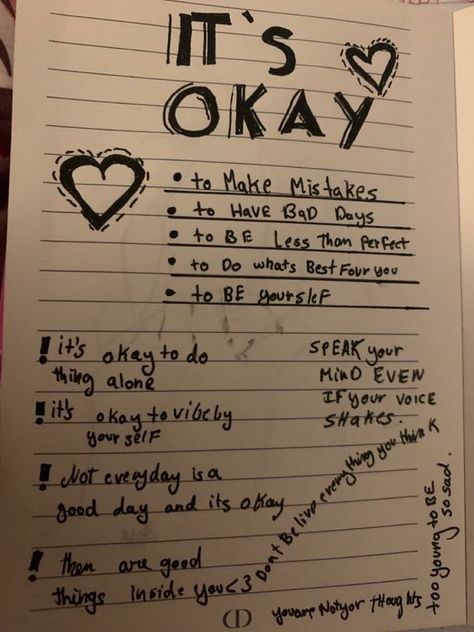 IT`s
OKAY
• to Make Mistakes
• to HAVE BaD Days
• to BE Less Than perfect
• to Do whats Best Four you
• to BE yourslef
! it's okay to do
thing alone
! it's okay to vibe by
your self
! Not everyday is a
good day and its okay
! then are good
things inside you<3
SPEAK your
MinD EVEN
IF your VOICE
SHAKES.
Don't Be live everything you think
too young to BE
so sad.
youare Not yor THougHts
CD